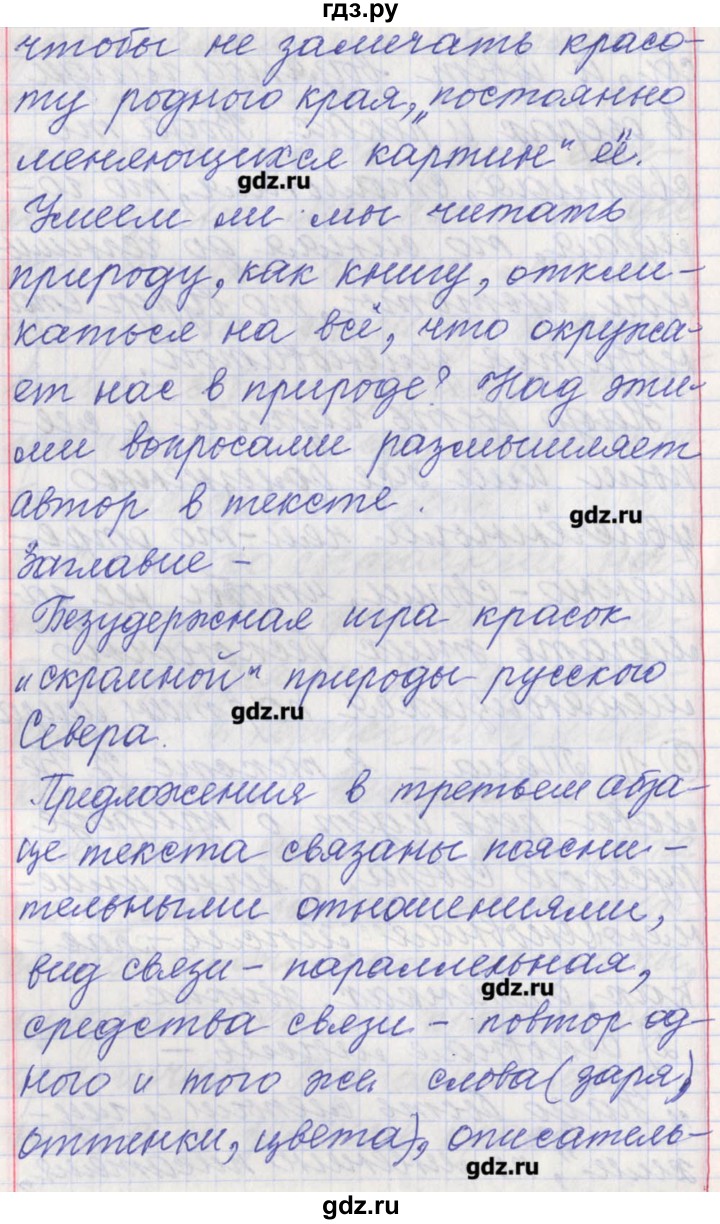 гдз.ру
чтобы не замечать красо-
ту родного края, „постоянно
меняющихся картин" её.
gdz.ru
Умеем ли мы читать
природу, как книгу, откли-
каться на всё, что окружа-
ет нас в природе? Над эти-
ми вопросами размышляет
автор в тексте.
gdz.ru
Заглавие –
Безудержная игра красок
„скромной" природы русского
gdz.ru
Севера.
Предложения в третьем абза-
це текста связаны поясни-
тельными отношениями,
вид связи – параллельная,
gdz.ru
средства связи – повтор од-
ного и того же слова (заря,
оттенки, цвета), описатель-
gdz.ru
gdz.ru